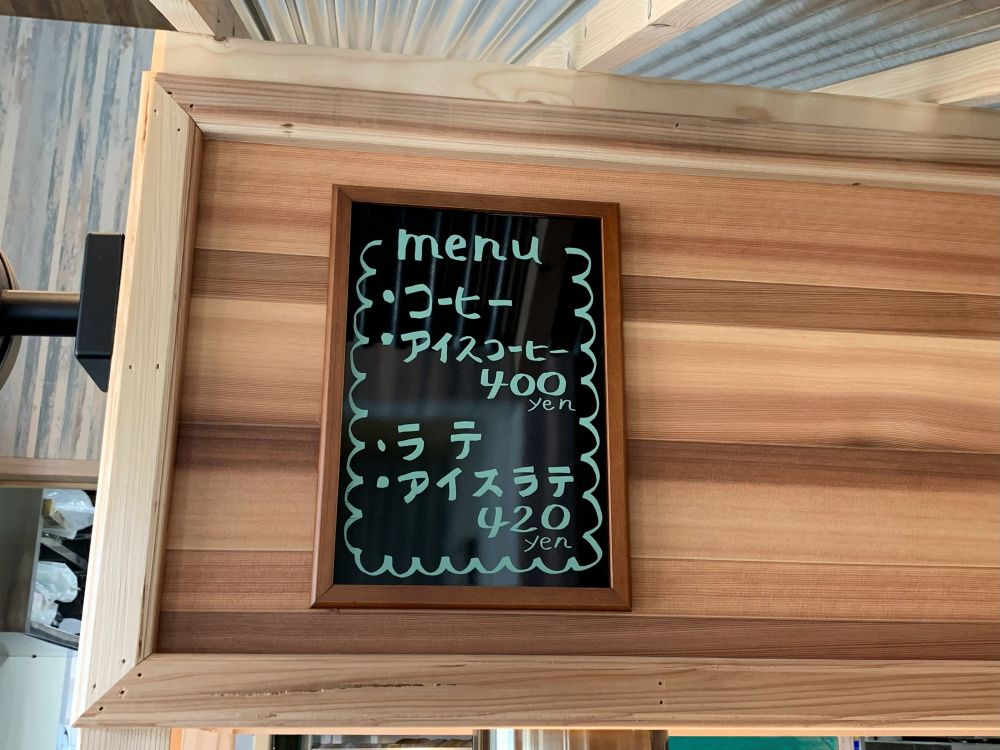 menu
・コーヒー
・アイスコーヒー
400
yen
・ラテ
・アイスラテ
420
yen